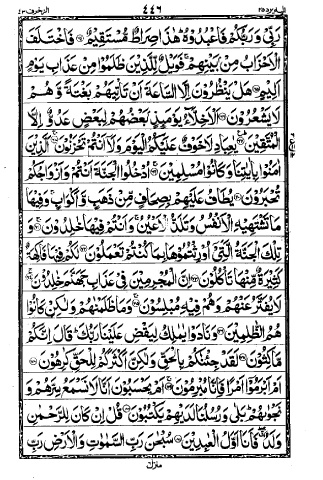 الیہ یرد ۲۵ ۴۴۶ الزخرف ۴۳
رَبِّيْ وَرَبُّكُمْ فَاعْبُدُوْهُ ؕ هٰذَا صِرَاطٌ مُّسْتَقِيْمٌ ۞ فَاخْتَلَفَ
الْاَحْزَابُ مِنْۢ بَيْنِهِمْ ۚ فَوَيْلٌ لِّلَّذِيْنَ ظَلَمُوْا مِنْ عَذَابِ يَوْمٍ
اَلِيْمٍ ۞ هَلْ يَنْظُرُوْنَ اِلَّا السَّاعَةَ اَنْ تَاْتِيَهُمْ بَغْتَةً وَّهُمْ
لَا يَشْعُرُوْنَ ۞ اَلْاَخِلَّآءُ يَوْمَئِذٍۢ بَعْضُهُمْ لِبَعْضٍ عَدُوٌّ اِلَّا
الْمُتَّقِيْنَ ۞ يٰعِبَادِ لَا خَوْفٌ عَلَيْكُمُ الْيَوْمَ وَلَآ اَنْتُمْ تَحْزَنُوْنَ ۞ اَلَّذِيْنَ
اٰمَنُوْا بِاٰيٰتِنَا وَكَانُوْا مُسْلِمِيْنَ ۞ اُدْخُلُوا الْجَنَّةَ اَنْتُمْ وَاَزْوَاجُكُمْ
تُحْبَرُوْنَ ۞ يُطَافُ عَلَيْهِمْ بِصِحَافٍ مِّنْ ذَهَبٍ وَّاَكْوَابٍ ۚ وَفِيْهَا
مَا تَشْتَهِيْهِ الْاَنْفُسُ وَتَلَذُّ الْاَعْيُنُ ۚ وَاَنْتُمْ فِيْهَا خٰلِدُوْنَ ۞ وَ
تِلْكَ الْجَنَّةُ الَّتِيْٓ اُوْرِثْتُمُوْهَا بِمَا كُنْتُمْ تَعْمَلُوْنَ ۞ لَكُمْ فِيْهَا فَاكِهَةٌ
كَثِيْرَةٌ مِّنْهَا تَاْكُلُوْنَ ۞ اِنَّ الْمُجْرِمِيْنَ فِيْ عَذَابِ جَهَنَّمَ خٰلِدُوْنَ ۞
لَا يُفَتَّرُ عَنْهُمْ وَهُمْ فِيْهِ مُبْلِسُوْنَ ۞ وَمَا ظَلَمْنٰهُمْ وَلٰكِنْ كَانُوْا
هُمُ الظّٰلِمِيْنَ ۞ وَنَادَوْا يٰمٰلِكُ لِيَقْضِ عَلَيْنَا رَبُّكَ ؕ قَالَ اِنَّكُمْ
مّٰكِثُوْنَ ۞ لَقَدْ جِئْنٰكُمْ بِالْحَقِّ وَلٰكِنَّ اَكْثَرَكُمْ لِلْحَقِّ كٰرِهُوْنَ ۞
اَمْ اَبْرَمُوْٓا اَمْرًا فَاِنَّا مُبْرِمُوْنَ ۞ اَمْ يَحْسَبُوْنَ اَنَّا لَا نَسْمَعُ سِرَّهُمْ وَ
نَجْوٰىهُمْ ؕ بَلٰى وَرُسُلُنَا لَدَيْهِمْ يَكْتُبُوْنَ ۞ قُلْ اِنْ كَانَ لِلرَّحْمٰنِ
وَلَدٌ ۖ فَاَنَا اَوَّلُ الْعٰبِدِيْنَ ۞ سُبْحٰنَ رَبِّ السَّمٰوٰتِ وَالْاَرْضِ رَبِّ